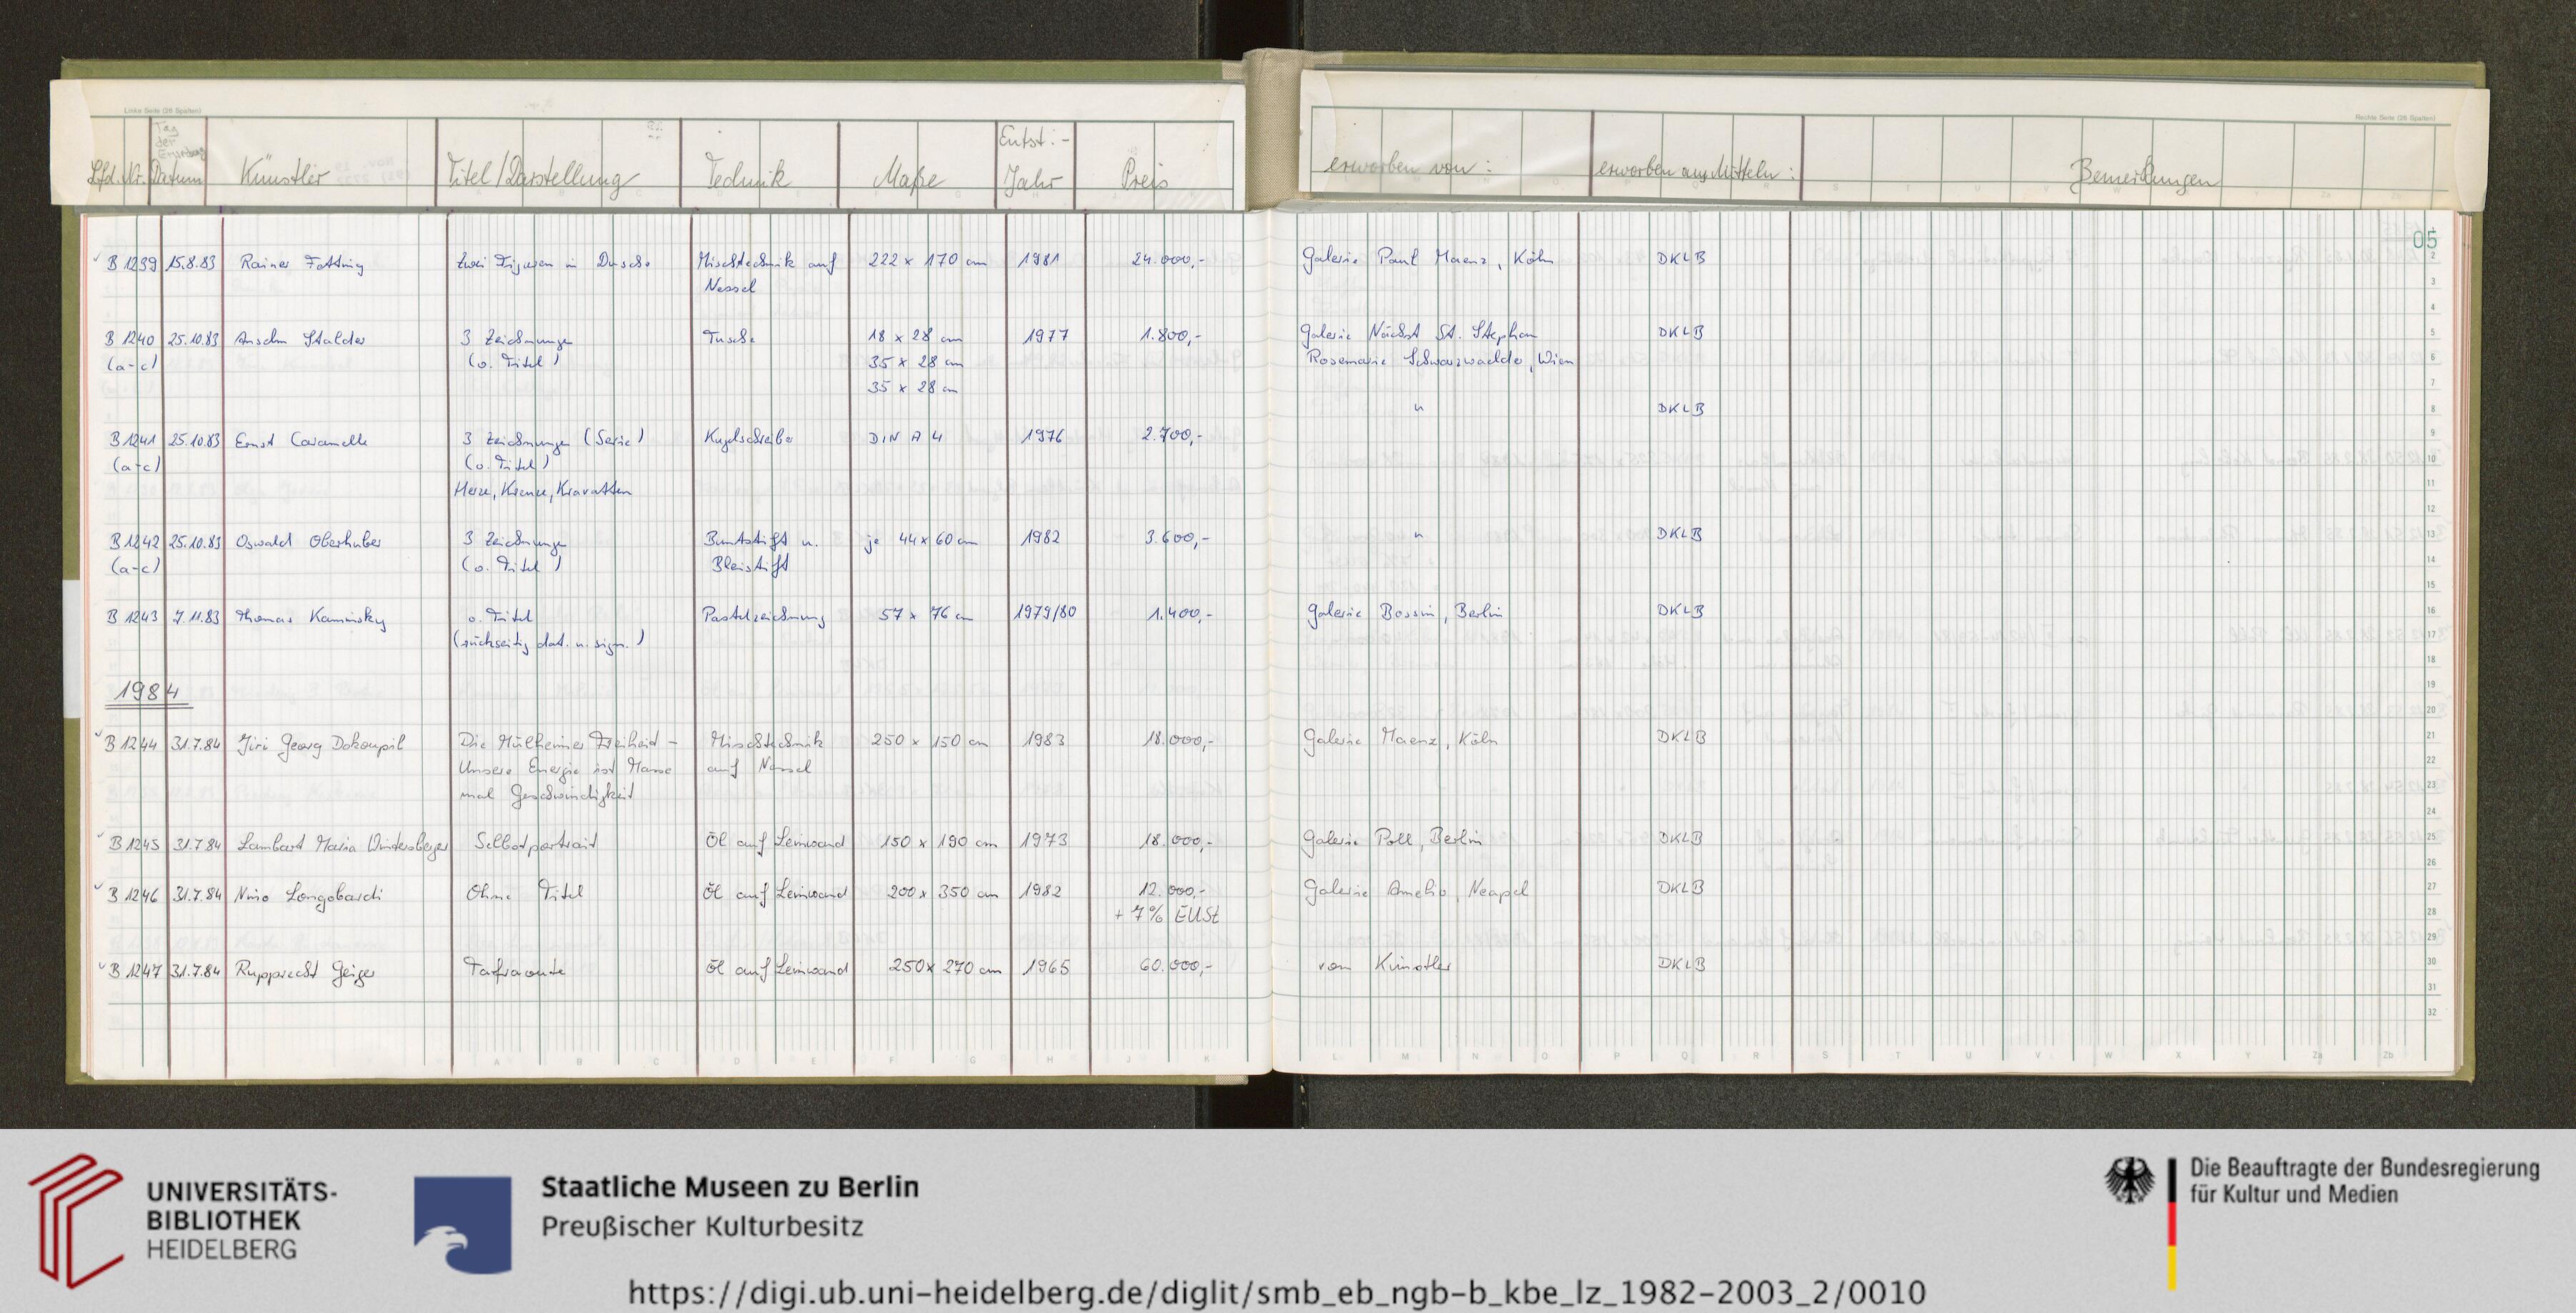 Linke Seite (26 Spalten)
Rechte Seite (26 Spalten)
Lfd. Nr. Tag der Erwerbung Datum Künstler Titel/Darstellung Technik Maße Entst.-Jahr Preis erworben von: erworben aus Mitteln: Bemerkungen
05
B 1239 15.8.83 Rainer Fetting Zwei Figuren in Dusche Mischtechnik auf 222 x 170 cm 1981 24.000,- Galerie Paul Maenz, Köln DKLB
Nessel
B 1240 25.10.83 Anselm Stalder 3 Zeichnungen Tusche 18 x 28 cm 1977 1.800,- Galerie Nächst St. Stephan DKLB
(a-c) (o. Titel) 35 x 28 cm Rosemarie Schwarzwälder, Wien
35 x 28 cm
" DKLB
B 1241 25.10.83 Ernst Caramelle 3 Zeichnungen (Serie) Kugelschreiber DIN A 4 1976 2.700,-
(a-c) (o. Titel)
Herze, Kreuze, Kravatten
B 1242 25.10.83 Oswald Oberhuber 3 Zeichnungen Buntstift u. je 44 x 60 cm 1982 3.600,- " DKLB
(a-c) (o. Titel) Bleistift
B 1243 7.11.83 Thomas Kaminsky o. Titel Pastellzeichnung 57 x 76 cm 1979/80 1.400,- Galerie Bossin, Berlin DKLB
(rückseitig dat. u. sign.)
1984
B 1244 31.7.84 Jiri Georg Dokoupil Die Mülheimer Freiheit - Mischtechnik 250 x 150 cm 1983 18.000,- Galerie Maenz, Köln DKLB
Unsere Energie ist Masse auf Nessel
mal Geschwindigkeit
B 1245 31.7.84 Lambert Maria Wintersberger Selbstportrait Öl auf Leinwand 150 x 190 cm 1973 18.000,- Galerie Poll, Berlin DKLB
B 1246 31.7.84 Nino Longobardi Ohne Titel Öl auf Leinwand 200 x 350 cm 1982 12.000,- Galerie Amelio, Neapel DKLB
+ 7% EUSt
B 1247 31.7.84 Rupprecht Geiger Tafraoute Öl auf Leinwand 250 x 270 cm 1965 60.000,- vom Künstler DKLB
A B C D E F G H J K L M N O P Q R S T U V W X Y Za Zb
UNIVERSITÄTS-
BIBLIOTHEK
HEIDELBERG
Staatliche Museen zu Berlin
Preußischer Kulturbesitz
Die Beauftragte der Bundesregierung
für Kultur und Medien
https://digi.ub.uni-heidelberg.de/diglit/smb_eb_ngb-b_kbe_lz_1982-2003_2/0010